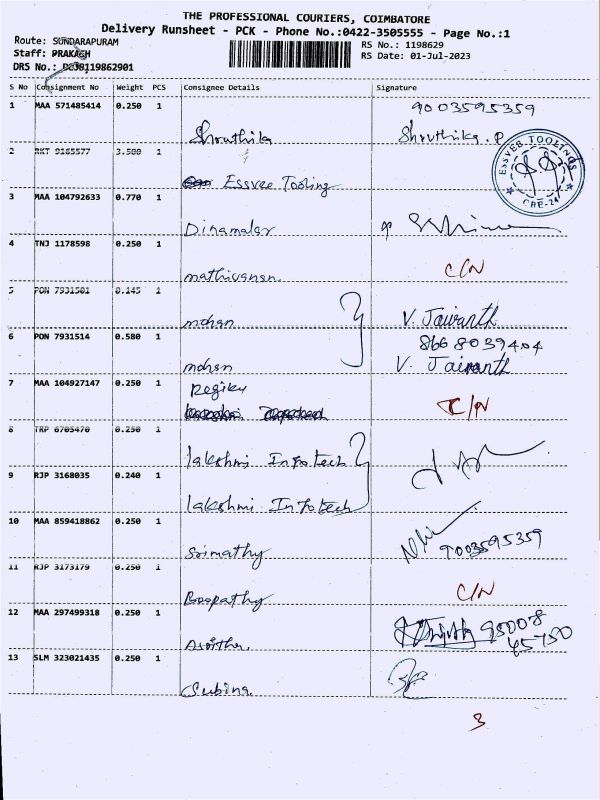 THE PROFESSIONAL COURIERS, COIMBATORE
Delivery Runsheet - PCK - Phone No.:0422-3505555 - Page No.:1
Route: SUNDARAPURAM
RS No.: 1198629
Staff: PRAKASH
RS Date: 01-Jul-2023
DRS No.: PCJ0119862901
S No Consignment No Weight PCS Consignee Details Signature
1 MAA 571485414 0.250 1 9003595359
Shruthika Shruthika. P
2 RKT 9165577 3.500 1
Essvee Tooling
ESSVEE TOOLINGS
CBE-24
3 MAA 104792633 0.770 1
Dinamalar
4 TNJ 1178598 0.250 1
mathivanan. C/N
5 PON 7931501 0.145 1
mohan V. Jaivanth
6 PON 7931514 0.580 1 866 8039404
mohan V. Jaivanth
7 MAA 104927147 0.250 1 Regika
C/N
8 TRP 6705470 0.250 1
lakshmi Infotech
9 RJP 3168035 0.240 1
lakshmi Infotech
10 MAA 859418862 0.250 1
Srimathy 9003595359
11 RJP 3173179 0.250 1
Boopathy C/N
12 MAA 297499318 0.250 1 95008
45750
13 SLM 323021435 0.250 1
Subina
3